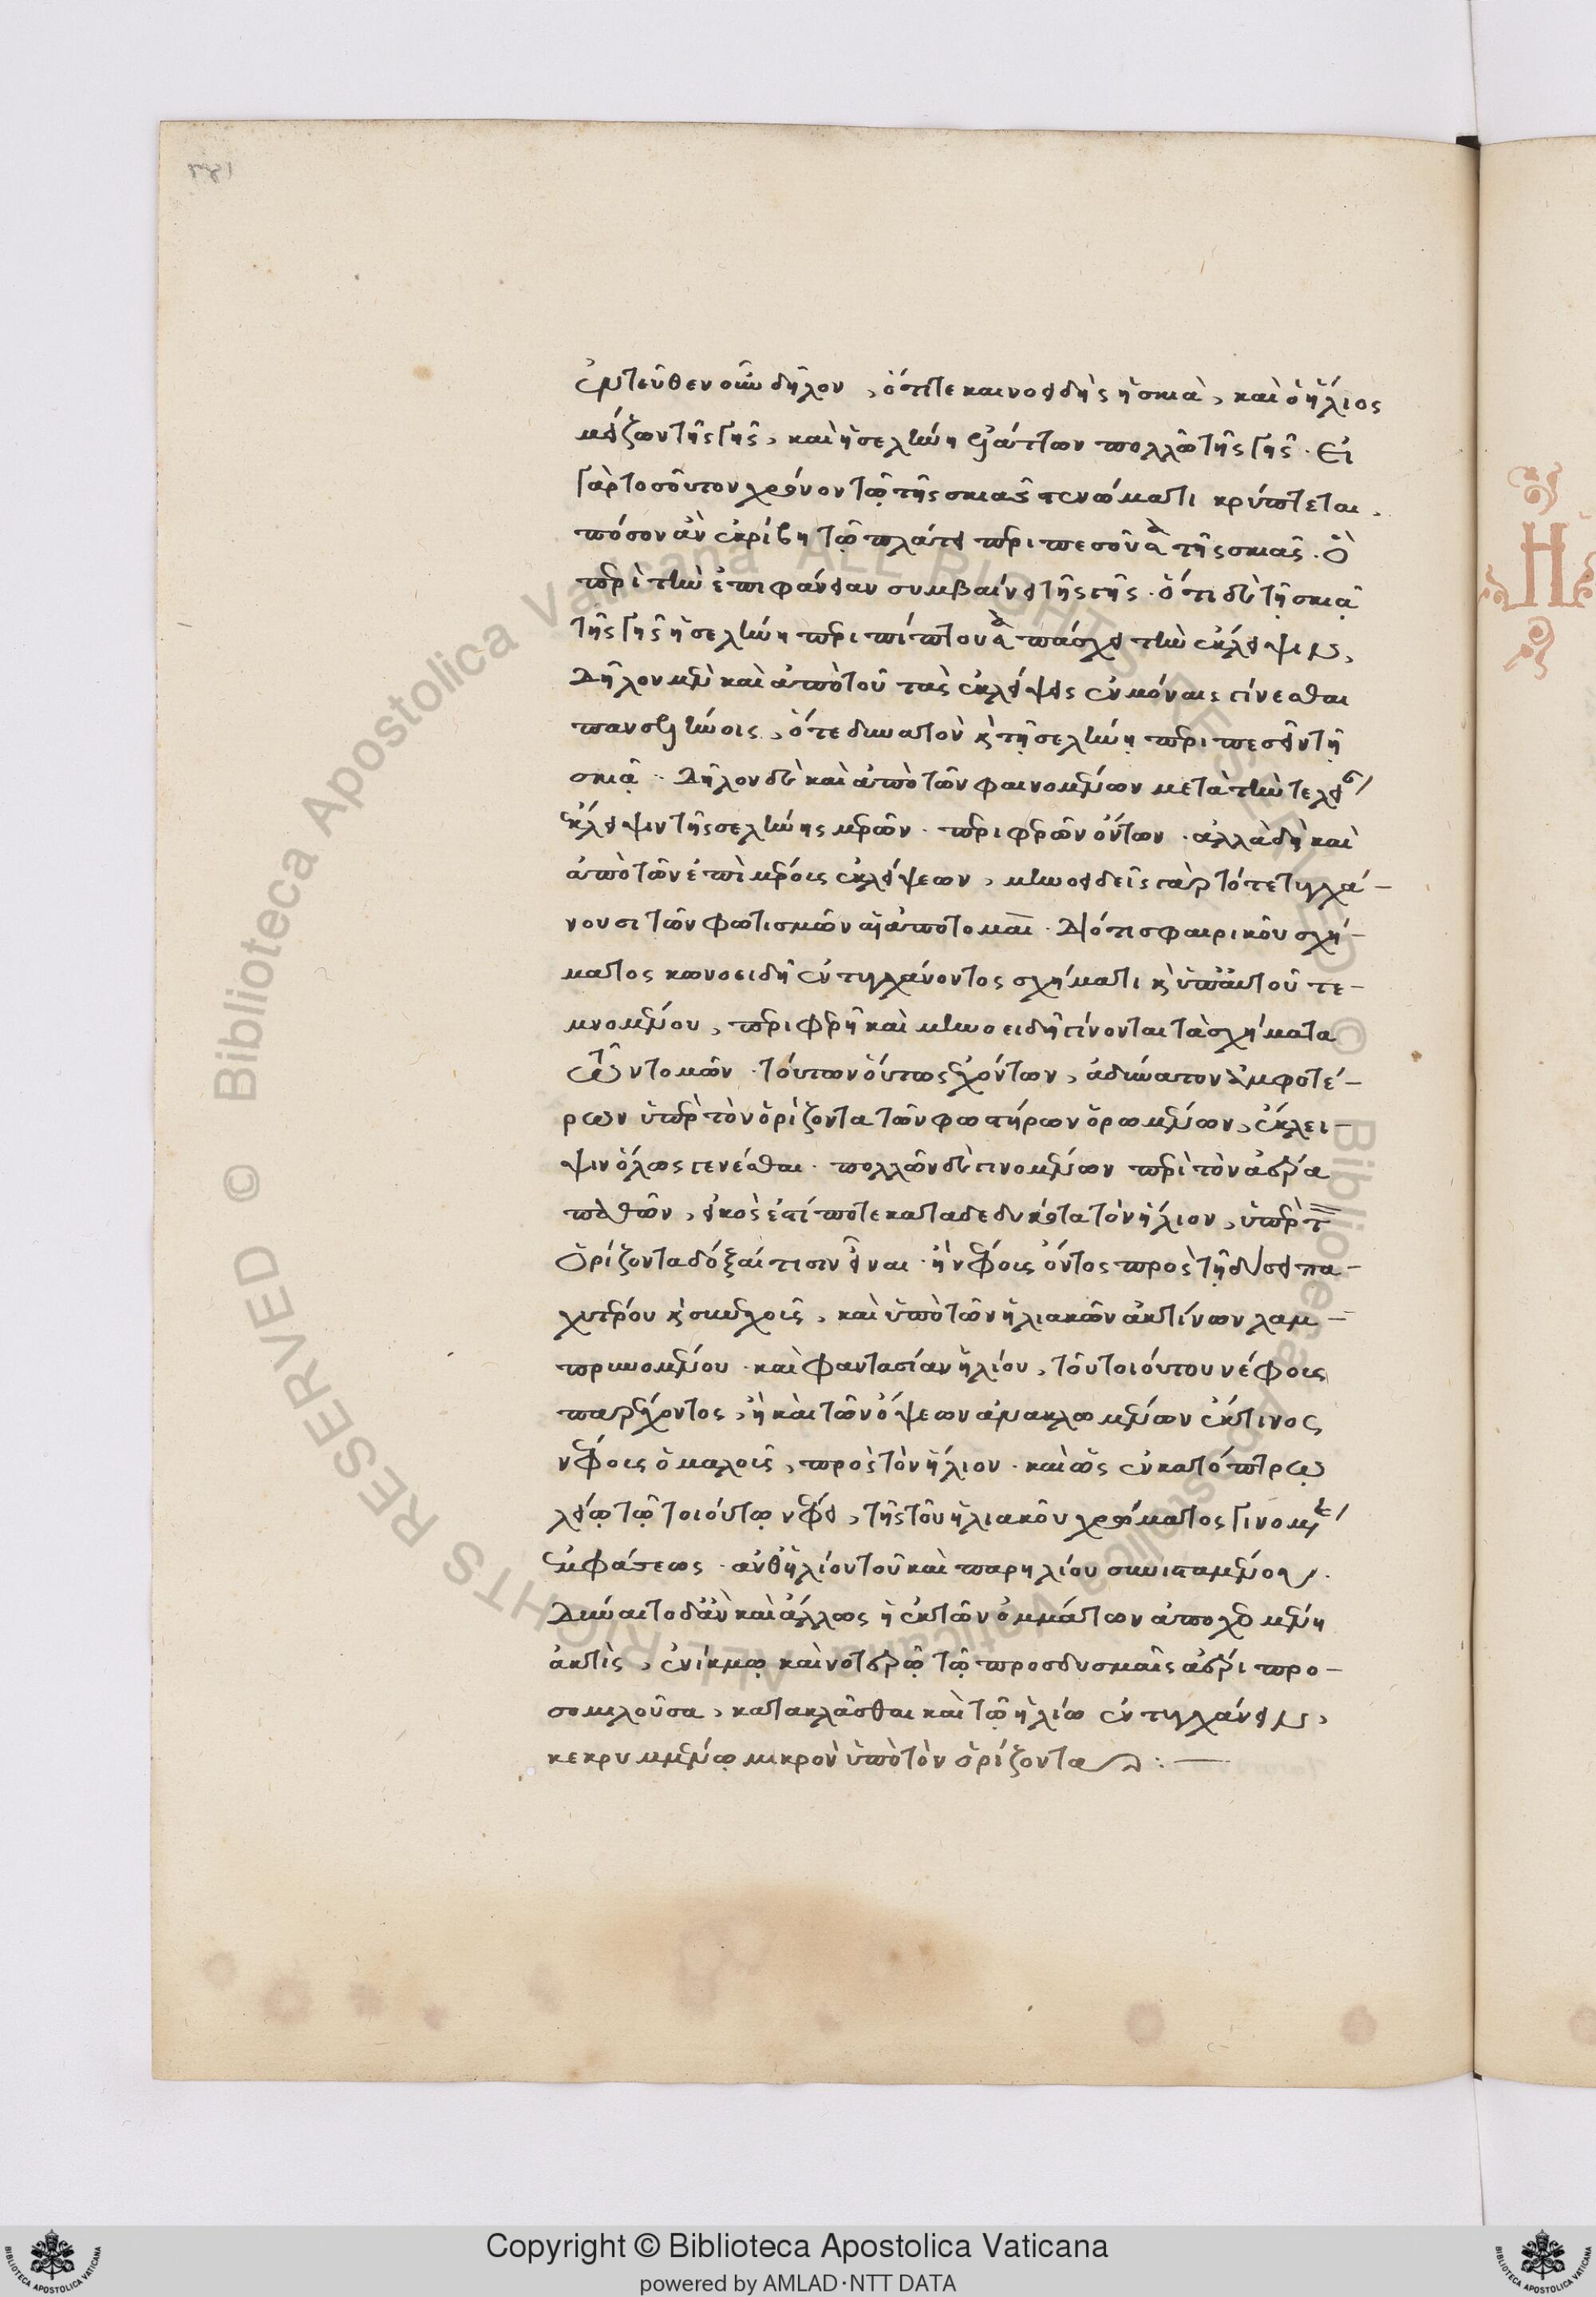 ἐντεῦθεν οὖν δῆλον, ὅτι τε κωνοειδὴς ἡ σκιὰ, καὶ ὁ ἥλιος
μείζων τῆς γῆς, καὶ ἡ σελήνη ἐλάττων πολλῶ τῆς γῆς. Εἰ
γὰρ τοσοῦτον χρόνον τῷ τῆς σκιᾶς κενώματι κρύπτεται.
πόσον ἂν ἐκρίβη τῷ πλάτει περιπεσοῦσα τῆς σκιᾶς. ὃ
περὶ τὴν ἐπιφάνειαν συμβαίνει τῆς γῆς. ὅτι δὲ τῇ σκιᾷ
τῆς γῆς ἡ σελήνη περιπίπτουσα πάσχει τὴν ἔκλειψιν,
δῆλον μὲν καὶ ἀπὸ τοῦ τὰς ἐκλείψεις ἐν μόναις γίνεσθαι
πανσελήνοις, ὅτε δυνατὸν καὶ τῇ σελήνῃ περιπεσεῖν τῇ
σκιᾷ. δῆλον δὲ καὶ ἀπὸ τῶν φαινομένων μετὰ τὴν τελεί
ἔκλειψιν τῆς σελήνης μερῶν. περιφερῶν ὄντων. ἀλλὰ δὴ καὶ
ἀπὸ τῶν ἐπὶ μέρους ἐκλείψεων, μηνοειδεῖς γὰρ τότε τυγχά-
νουσι τῶν φωτισμῶν αἱ ἀποτομαί. διότι σφαιρικοῦ σχή-
ματος κωνοειδῆ ἐντυγχάνοντος σχήματι καὶ ὑπ' αὐτοῦ τε-
μνομένου, περιφερῆ καὶ μηνοειδῆ γίνονται τὰ σχήματα
τῶν τομῶν. τούτων οὕτως ἐχόντων, ἀδύνατον ἀμφοτέ-
ρων ὑπὲρ τὸν ὁρίζοντα τῶν φωστήρων ὁρωμένων, ἔκλει-
ψιν ὅλως γενέσθαι. πολλῶν δὲ γινομένων περὶ τὸν ἀέρα
παθῶν, εἰκὸς ἔτι ποτε καταδεδυκότα τὸν ἥλιον, ὑπὲρ τὸν
ὁρίζοντα δόξαι τισὶν εἶναι. ἢ νέφους ὄντος πρὸς τῇ δύσει πα-
χυτέρου καὶ συνεχοῦς, καὶ ὑπὸ τῶν ἡλιακῶν ἀκτίνων λαμ-
πρυνομένου. καὶ φαντασίαν ἡλίου, τοῦ τοιούτου νέφους
παρέχοντος, ἢ καὶ τῶν ὄψεων ἀνακλωμένων ἔκ τινος
νέφους ὁμαλοῦς, πρὸς τὸν ἥλιον. καὶ ὡς ἐν κατόπτρῳ
λείῳ τῷ τοιούτῳ νέφει, τῆς τοῦ ἡλιακοῦ χρώματος γινομέ
ἐμφάσεως. ἀνθηλίου τοῦ καὶ παρηλίου συνισταμένου.
Δύναιτο δ' ἂν καὶ ἄλλως ἡ ἐκ τῶν ὀμμάτων ἀποχεομένη
ἀκτὶς, ἐνίκμῳ καὶ νοτερῷ τῷ προσδυσμαῖς ἀέρι προ-
σομιλοῦσα, κατακλᾶσθαι καὶ τῷ ἡλίῳ ἐντυγχάνειν,
κεκρυμμένῳ μικρὸν ὑπὸ τὸν ὁρίζοντα:—
Copyright © Biblioteca Apostolica Vaticana
powered by AMLAD·NTT DATA